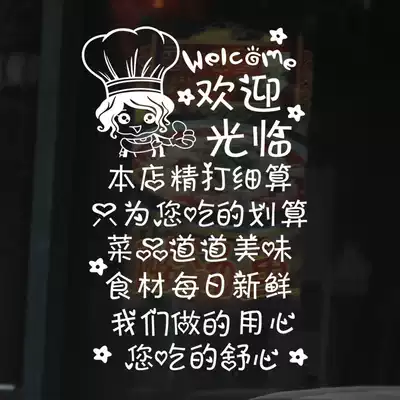 Welcome
欢迎
光临
本店精打细算
只为您吃的划算
菜品道道美味
食材每日新鲜
我们做的用心
您吃的舒心